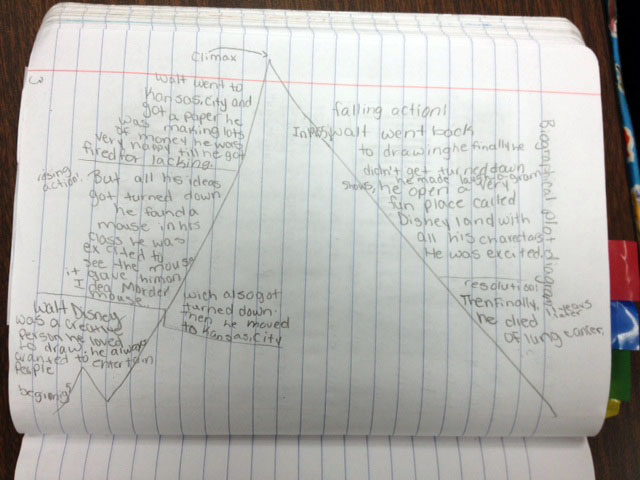 Climax
Walt went to
Kansas,city and
got a paper he
was making lots
of money he was
very happy till he got
fired for lacking.
rising
action:
But all his ideas
got turned down
he found a
mouse in his
class he was
excited to
see the mouse
it gave him an
Idea Morder
mouse
wich also got
turned down.
Then he moved
to Kansas,City
Walt Disney
was a creative
person he loved
to draw, he always
wanted to entertain
people
beginning
falling action!
In 1955, walt went back
to drawing he finally
didn't get turned down
he made
shows, he open a very
fun place called
Disney land with
all his charectars
He was excited.
resolution:
Then finally,
years
later
he died
of lung cancer.
Biografical plot diagram